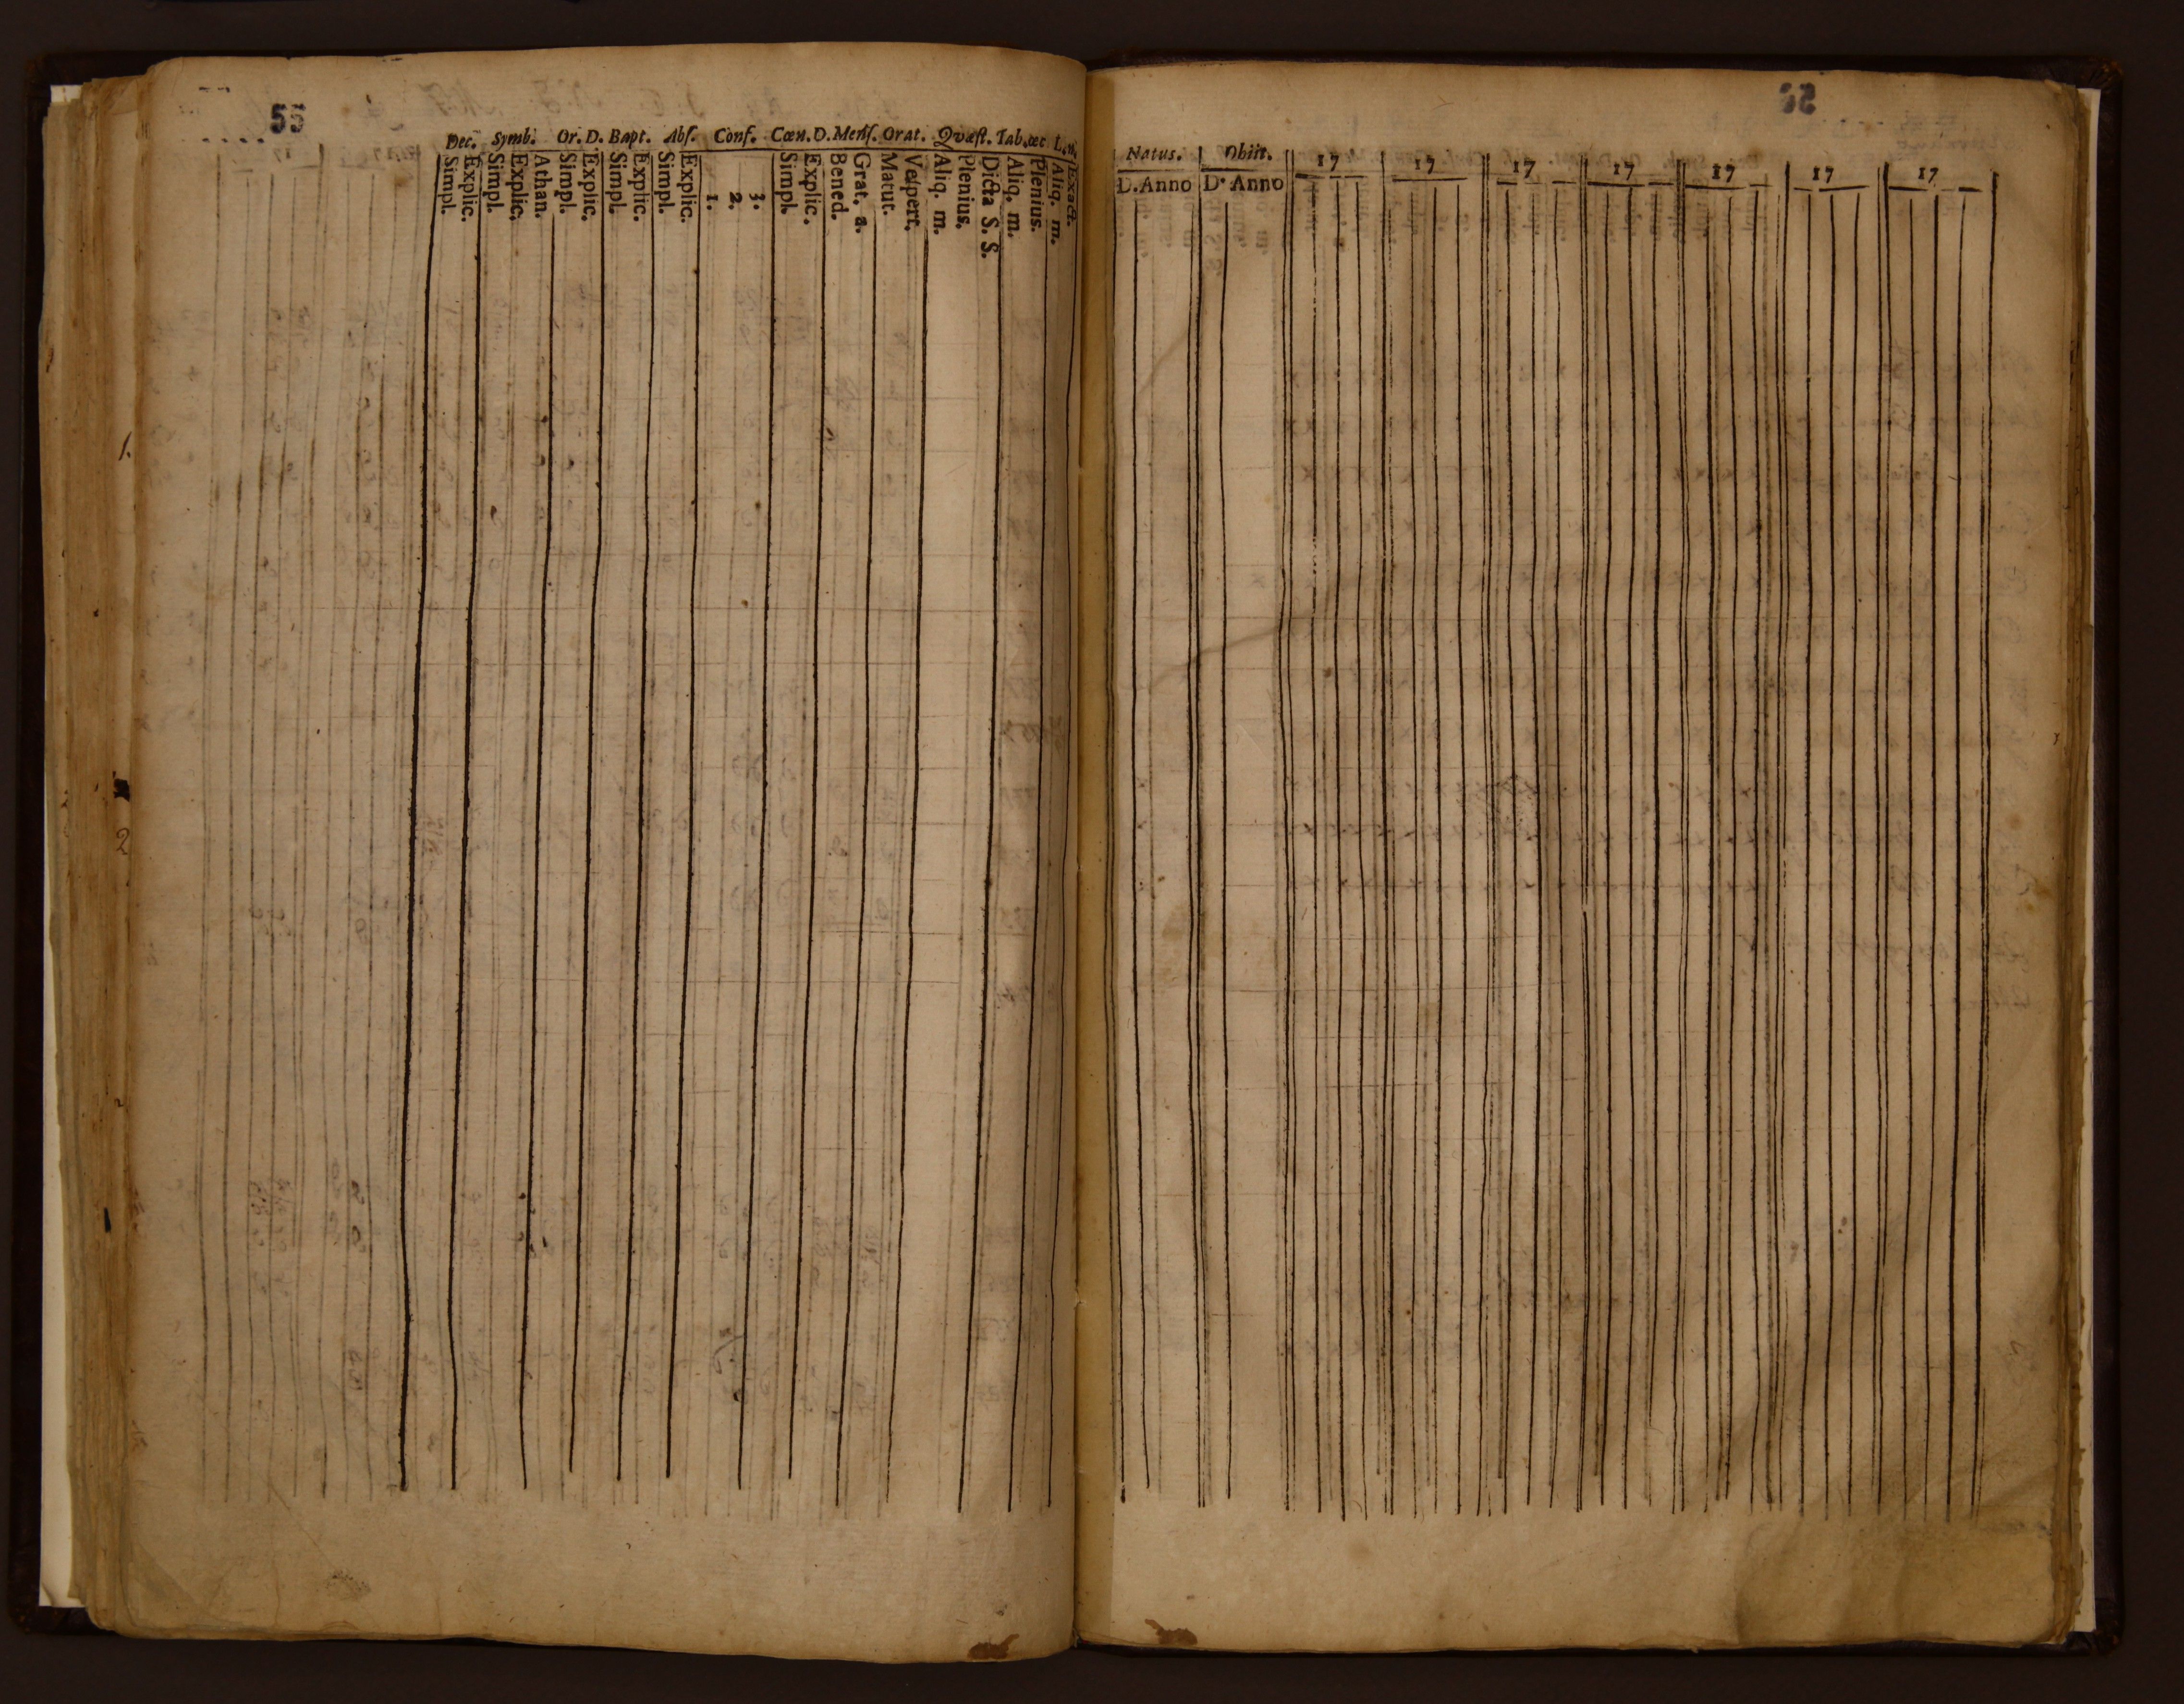 55
Dec. Symb. Or. D. Bapt. Abs. Conf. Cœn. D. Mens. Orat. Qvæst. Tab. œc L. n.
Simpl.
Explic.
Simpl.
Explic.
Athan.
Simpl.
Explic.
Simpl.
Explic.
Simpl.
Explic.
1.
2.
3.
Simpl.
Explic.
Bened.
Grat. a.
Matut.
Vespert.
Aliq. m.
Plenius.
Dicta S. S.
Aliq. m.
Plenius.
Aliq. m.
Exact.
1.
2
Natus. Obiit. 17 17 17 17 17 17 17
D. Anno D. Anno